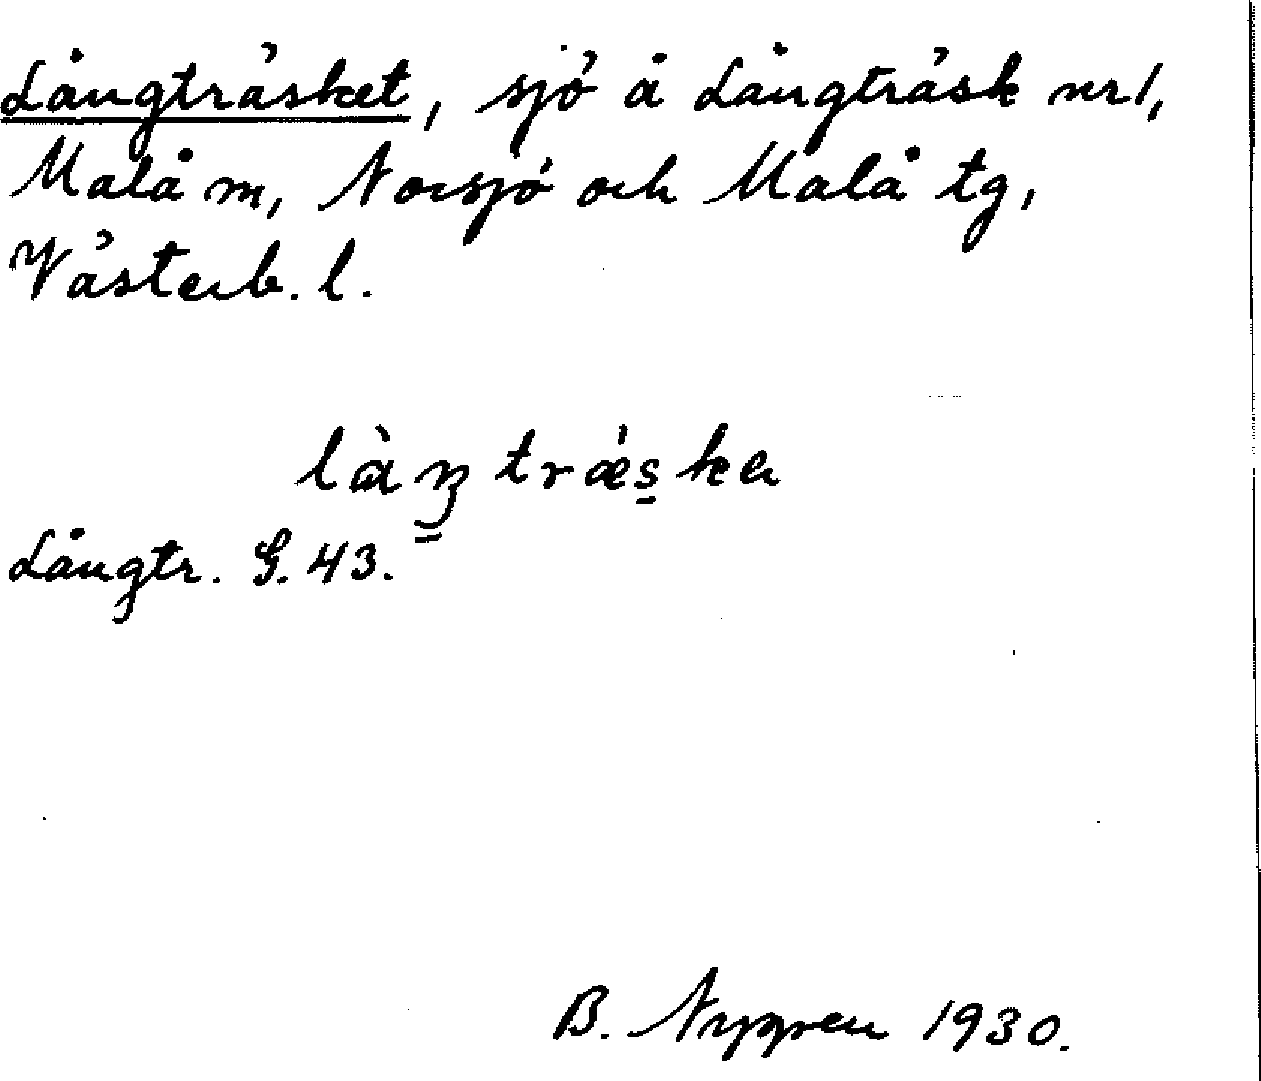 Långträsket, sjö å Långträsk nr 1,
Malå m, Norsjö och Malå tg,
Västerb. l.
làŋtrǽska
Långtr. G. 43.
B. Nygren 1930.